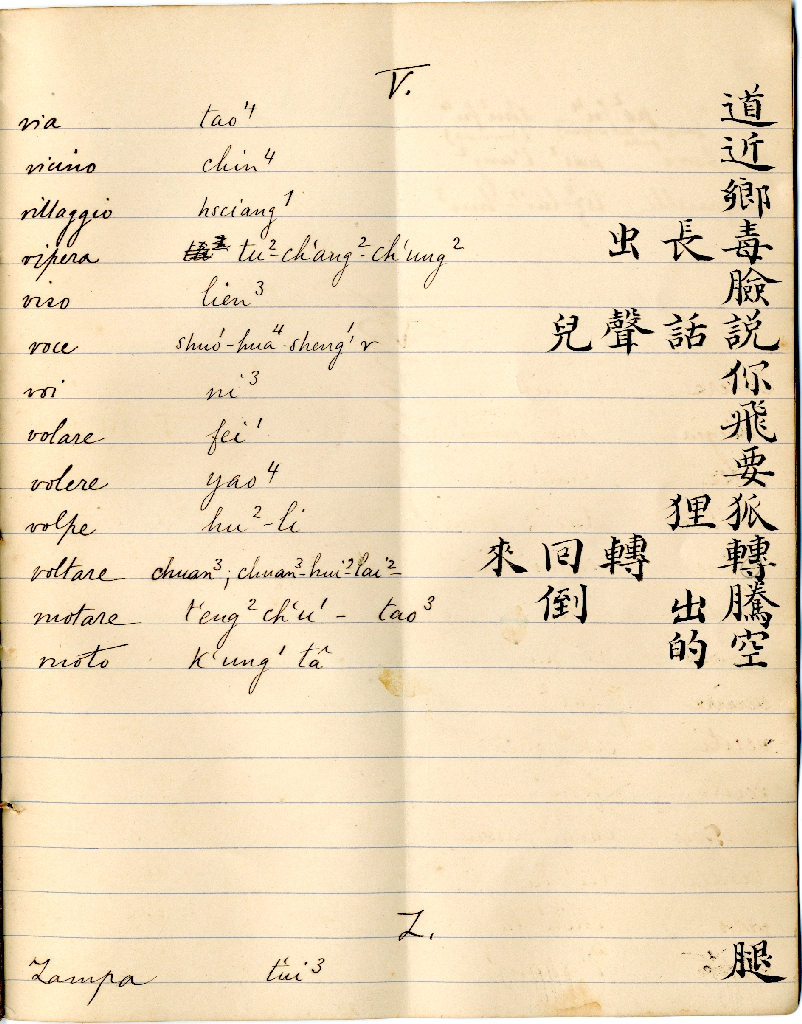 V.
via tao⁴ 道
vicino chin⁴ 近
villaggio hsciang¹ 鄉
vipera tu²-ch'ang²-ch'ung² 毒長虫
viso lien³ 臉
voce shuo¹-hua⁴-sheng¹ r 説話聲兒
voi ni³ 你
volare fei¹ 飛
volere yao⁴ 要
volpe hu²-li 狐狸
voltare chuan³; chuan³-hui²lai²- 轉 轉回來
vuotare t'eng² ch'u¹ - tao³ 騰出 倒
vuoto k'ung¹ tâ 空的
Z.
Zampa t'ui³ 腿